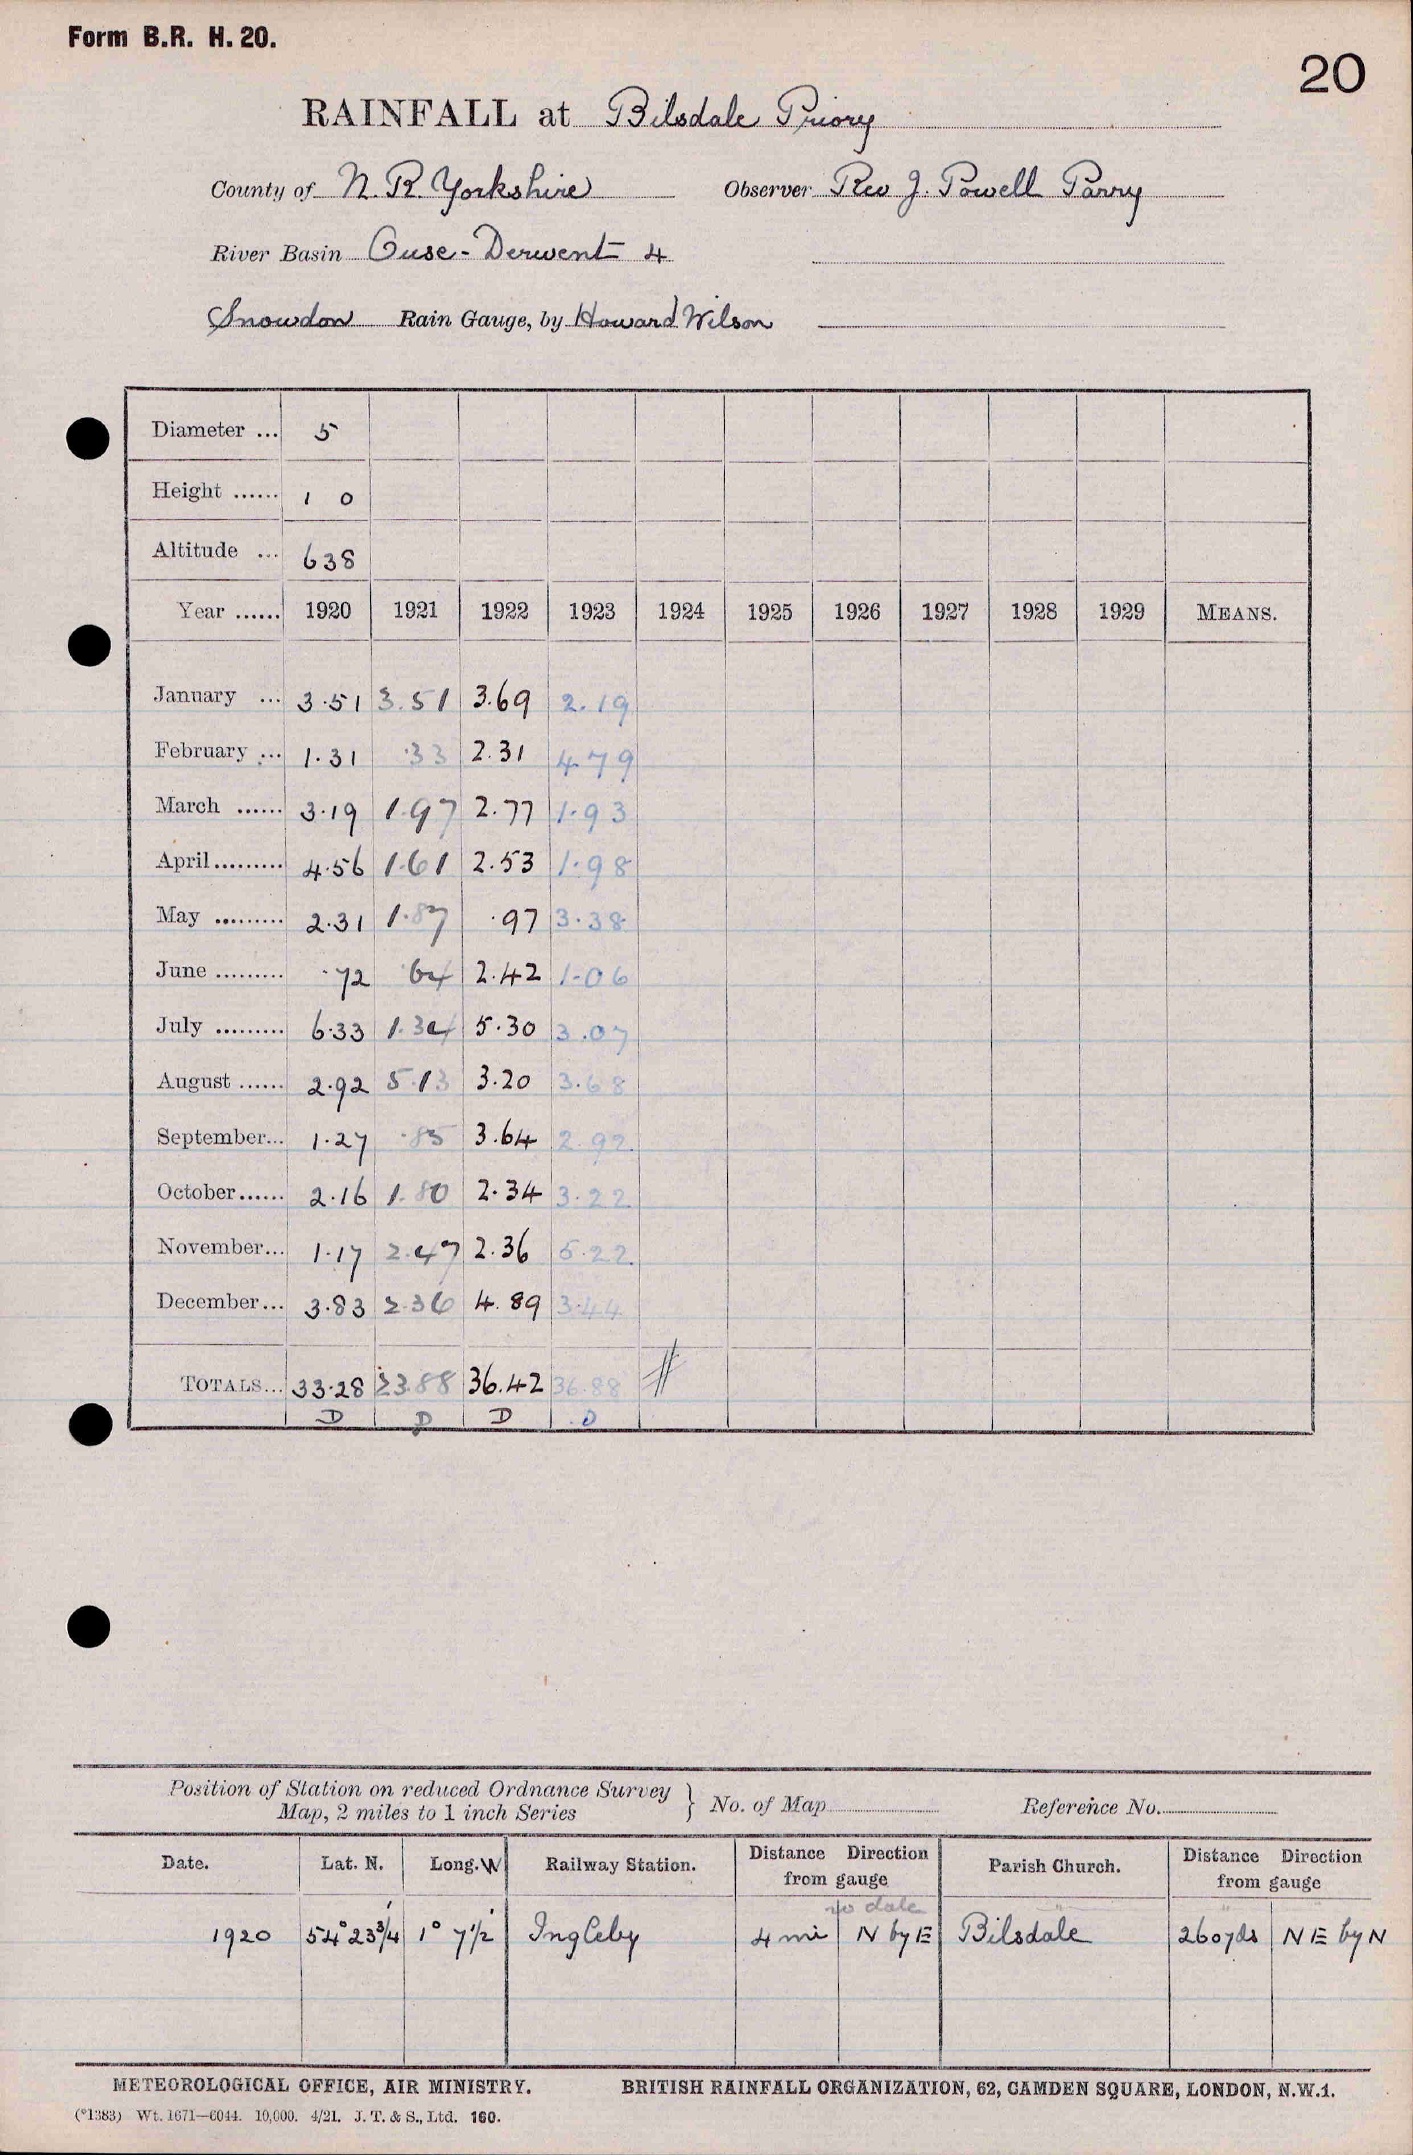 Form B.R. H. 20.
20
RAINFALL at Bilsdale Priory
County of N. R. Yorkshire Observer Rev J. Powell Parry
River Basin Ouse - Derwent 4
Snowdon Rain Gauge, by Howard Wilson
Diameter ... 5
Height ...... 1 0
Altitude ... 638
Year ...... 1920 1921 1922 1923 1924 1925 1926 1927 1928 1929 MEANS.
January ... 3.51 3.51 3.69 2.19
February ... 1.31 .33 2.31 4.79
March ...... 3.19 1.97 2.77 1.93
April......... 4.56 1.61 2.53 1.98
May ......... 2.31 1.87 .97 3.38
June ......... .72 .64 2.42 1.06
July ......... 6.33 1.34 5.30 3.07
August ...... 2.92 5.13 3.20 3.68
September... 1.27 .85 3.64 2.92
October...... 2.16 1.80 2.34 3.22
November... 1.17 2.47 2.36 5.22
December... 3.83 2.36 4.89 3.44
TOTALS... 33.28 23.88 36.42 36.88
D D D D
Position of Station on reduced Ordnance Survey
Map, 2 miles to 1 inch Series } No. of Map Reference No.
Date. Lat. N. Long. W Railway Station. Distance Direction from gauge Parish Church. Distance Direction from gauge
no date " "
1920 54° 23¾' 1° 7½' Ingleby 4 mi N by E Bilsdale 260 yds NE by N
METEOROLOGICAL OFFICE, AIR MINISTRY. BRITISH RAINFALL ORGANIZATION, 62, CAMDEN SQUARE, LONDON, N.W.1.
(*1383) Wt. 1671—6044. 10,000. 4/21. J. T. & S., Ltd. 160.